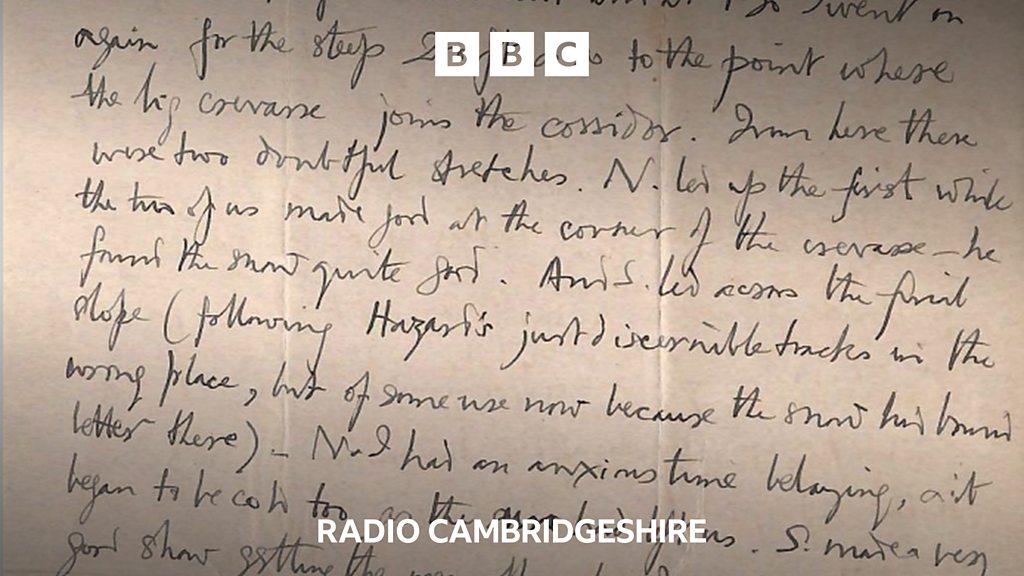 I went on
again for the steps & to the point where
BBC
the big crevasse joins the corridor. From here there
were two doubtful stretches. N. led up the first while
the two of us made good at the corner of the crevasse – he
found the snow quite good. And S. led across the final
slope (following Hazard's just discernible tracks in the
wrong place, but of some use now because the snow had bound
better there) – N. & I had an anxious time belaying, & it
began to be cold too as the had left us. S. made a very
RADIO CAMBRIDGESHIRE
good show getting the